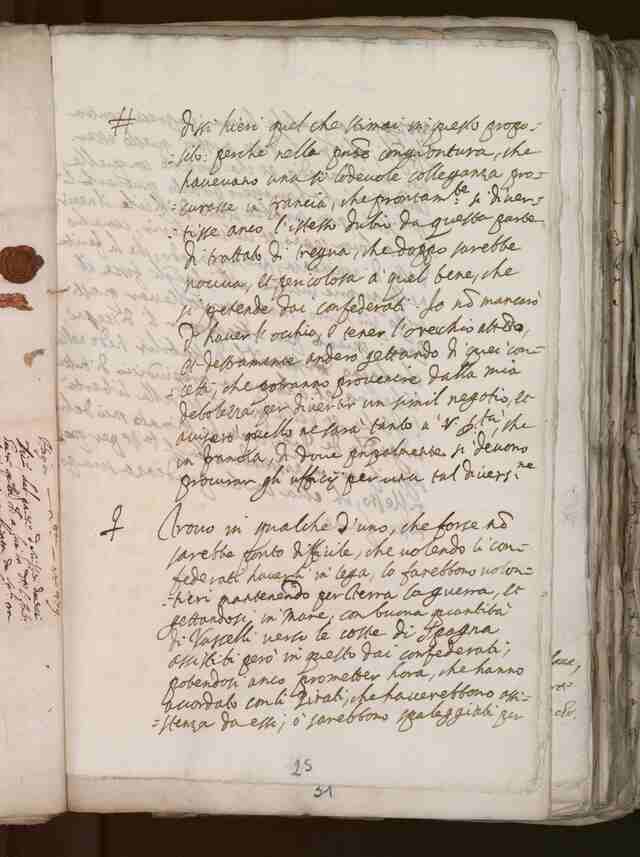 # dissi hieri quel che stimai in questo propo-
-sito: perche nella pnte congiontura, che
havevano una si lodevole colleganza pro-
curasse in francia, che prontamte si diver-
-tisse anco l'istesso dubio da questa parte
di trattato di tregua, che doppo sarebbe
nociva, et pericolosa a quel bene, che
si pretende dai confederati. Io nō mancarò
d'haver l'occhio, e tener l'orecchio
et destramente anderò gettando di quei con-
cetti, che potranno provenire dalla mia
debolezza per divertir un simil negotio, et
avisarò quello ne sarà tanto a V. Sta, che
in francia, di dove principalmente si devono
procurar gli ufficij per una tal diversne
Trovo in qualche d'uno, che forse nō
sarebbe ponto difficile, che volendo li con-
federati haverli in lega, lo farebbono volon-
-tieri mantenendo per terra la guerra, et
gettandosi in Mare, con buona quantità
di Vasselli verso le coste di Spagna
assistiti però in questo dai confederati;
potendosi anco prometter hora, che hanno
acordato con li Pirati, che haverebbono assi-
-stenza da essi, ò sarebbono spaleggiati per
25
31